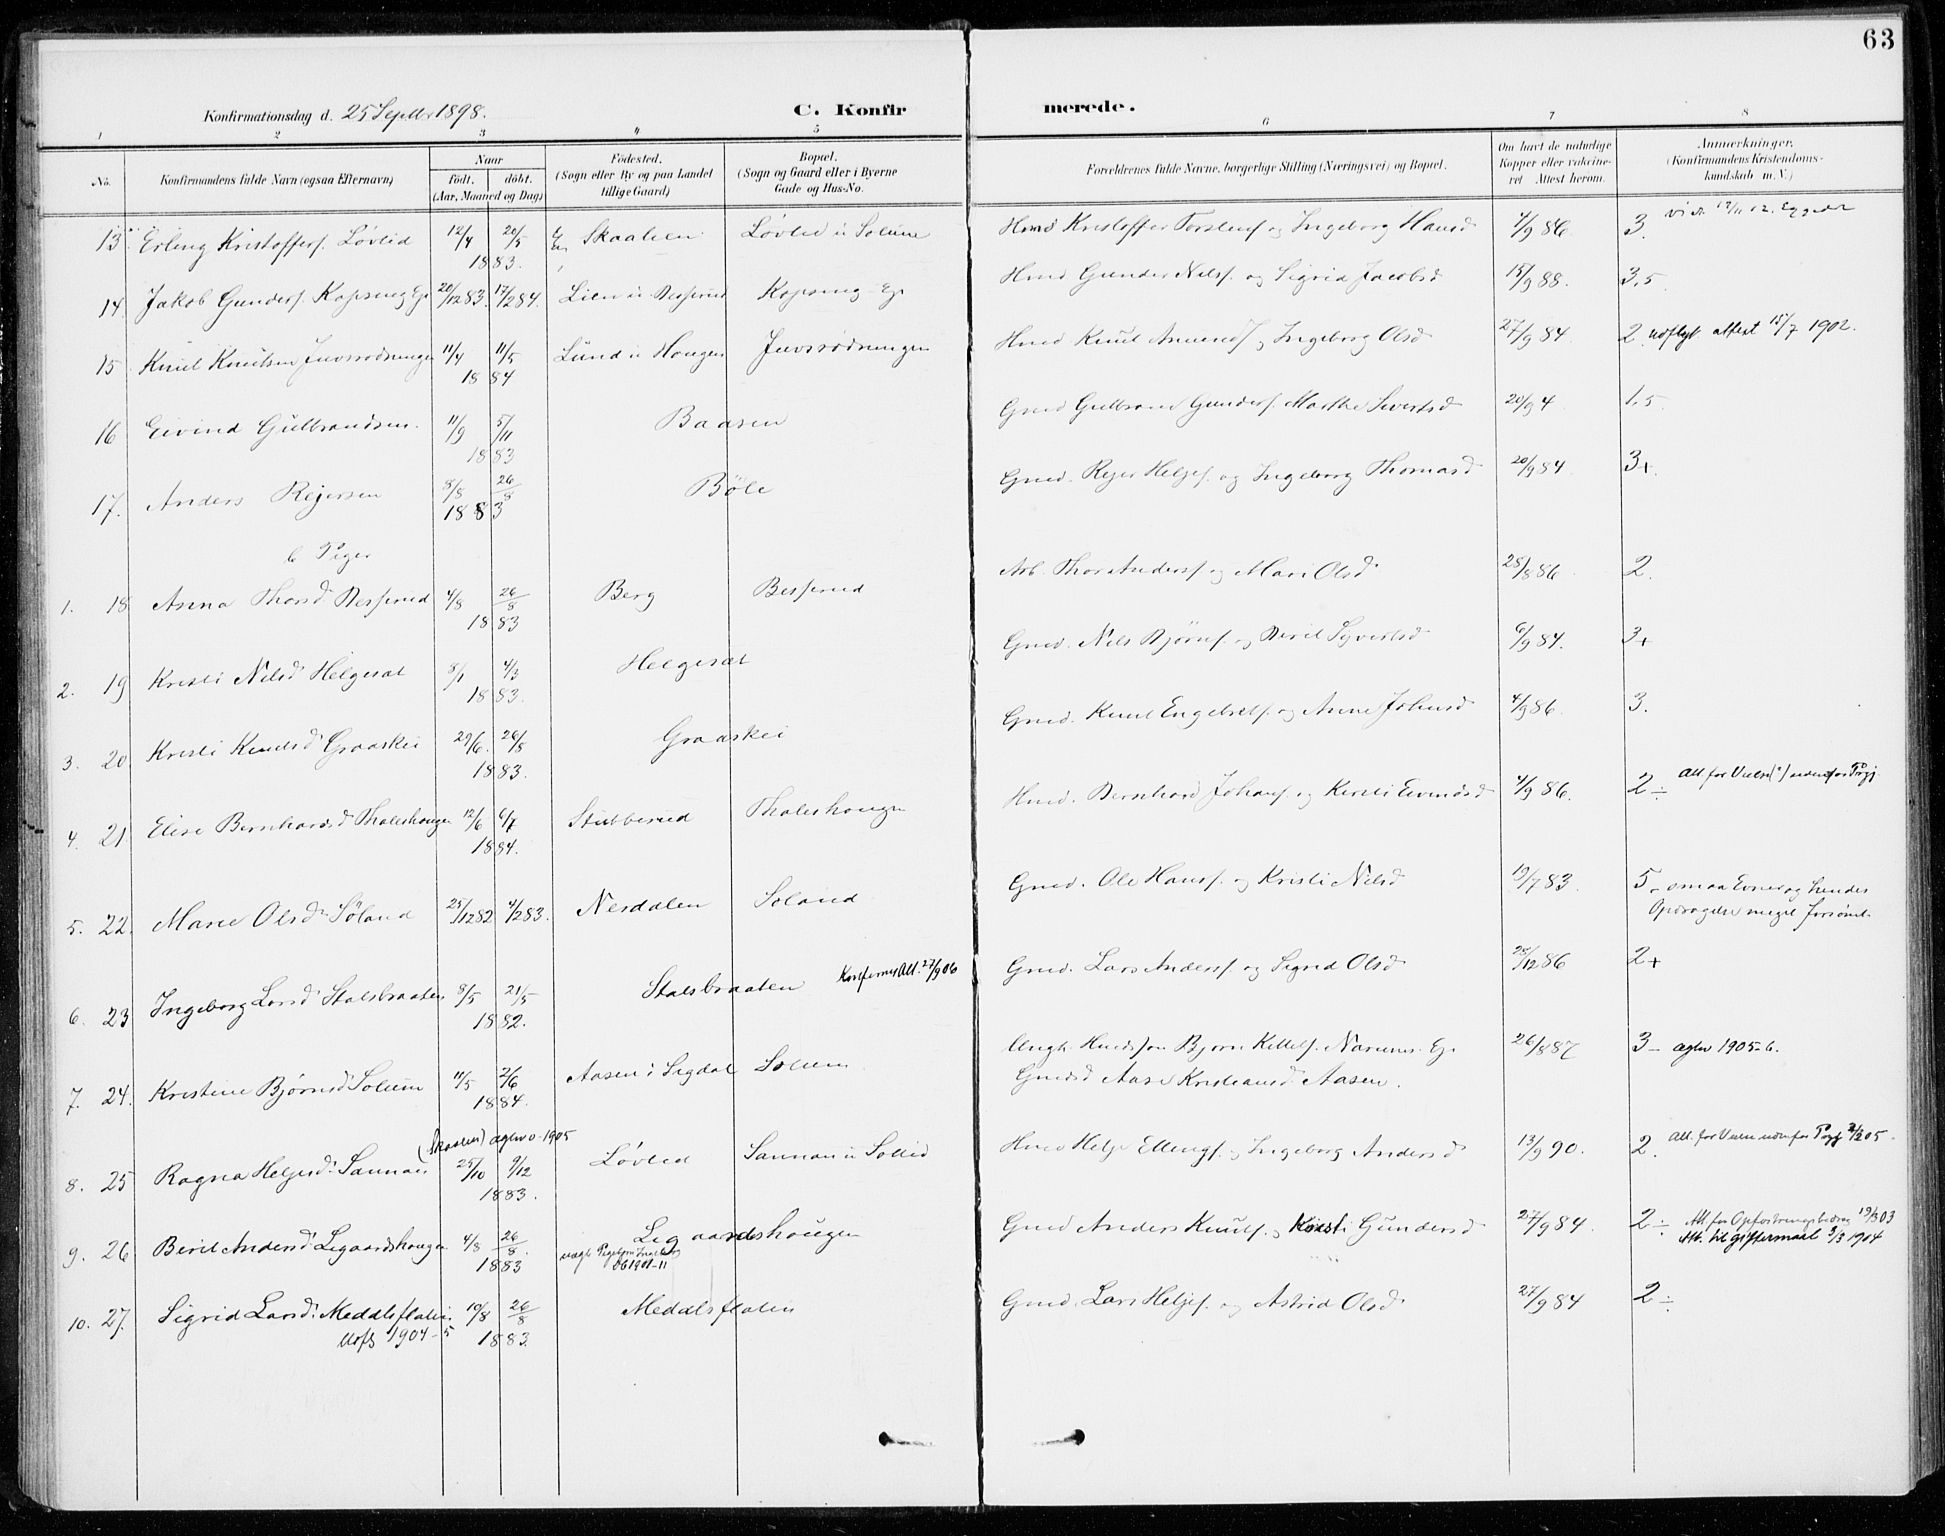 63
Konfirmationsdag d. 25 Septbr 1898.
C. Konfirmerede.
1 2 3 4 5 6 7 8
No. Konfirmandens fulde Navn (ogsaa Efternavn) Naar födt, döbt. (Aar, Maaned og Dag) Födested. (Sogn eller By og paa Landet tillige Gaard) Bopæl. (Sogn og Gaard eller i Byerne Gade og Hus-No. Forældrenes fulde Navne, borgerlige Stilling (Næringsvei) og Bopæl. Om havt de naturlige Kopper eller vaccineret. Attest herom. Anmærkninger. (Konfirmandens Kristendomskundskab m. V.)
13 Erling Kristoffers. Løvlid 12/4 20/5 1883. Skaalien Løvlid u Solum Hmd Kristoffer Torstens. og Ingeborg Hansd 4/9 86 3.
14 Jakob Gunders. Kopseng Eje 20/12 83. 17/2 84. Lien u Besserud Kopseng Eje Hmd Gunder Nilss. og Sigrid Jacobsd 15/9 88. 3,5
15 Knut Knutsen Juvsrødningen 11/4 11/5 1884 Lund u Hougen Juvsrødningen Hmd Knut Amunds. og Ingeborg Olsd 27/9 84. 2. udflyt. attest 15/7 1902.
16 Eivind Gulbrandsen. 11/9 5/11 1883 Baasen Gmd Gulbrand Gunders. Marthe Sivertsd 20/9 4 1,5
17. Anders Rejersen 8/5 26/8 1883 Böle Gmd. Rejer Heljes. og Ingeborg Thomasd 20/9 84. 3+.
b Piger
1. 18 Anna Thorsd Besserud 4/8 26/8 1883 Berg Besserud Arb. Thor Anders. og Mari Olsd 28/8 86 2.
2. 19 Kristi Nilsd Helgeset 8/1 4/3 1883. Helgeset Gmd. Nils Bjørns. og Beret Syvertsd 6/9 84. 3+
3. 20 Kristi Knutsd Graaskei 29/6. 26/8 1883. Graaskei Gmd. Knut Engebrets. og Anne Johnsd 4/9 86. 3.
4. 21 Elise Bernhardsd Thaleshougen 12/6 6/7 1884. Stubberud Thaleshougen Hmd. Bernhard Johans. og Kersti Eivindsd 4/9 86. 2÷ Att. for Vielse
5. 22. Marie Olsd Søland 25/12 82 4/2 83. Nerdalen Soland Gmd. Ole Hanss. og Kristi Nilsd 19/7 83. 5 – smaa Evner og hendes Opdragelse meget forsømt.
6. 23 Ingeborg Larsd Stalsbraaten 8/5 21/5 1882. Stalsbraaten Att. 27/9 06 Gmd. Lars Anders. og Sigrid Olsd 28/12 86 2+
7. 24. Kristine Bjørnsd Solum 11/5 2/6 1884. Aasen i Sigdal Solum Ungk. Bjørn Kittels. Gmdsd Aase Kristiansd Aasen. 26/8 87 3– ægtev 1905-6.
8. 25 Ragna Heljesd. Sannan (Skaalien) ægtev 1905 25/10 9/12 1883. Løvlid Sannan u Sollid Hmd Helje Ellings. og Ingeborg Andersd 13/9 90. 2. Att. for Vielse udenfor Pgj 2/2 05
9. 26 Beret Andersd. Legaardshougen 4/8 26/8 1883 Legaardshougen Gmd Anders Knuts. og Kirsti Gundersd 27/9 84. 2÷ Att. for Opfostringsbidrag 19/3 03 Att. til giftermaal 3/3 1904
10. 27. Sigrid Larsd. Meddalsflaten. Udfl 1904-5 10/8 26/8 1883. Meddalsflaten Gmd. Lars Heljes. og Astrid Olsd 27/9 84 2÷